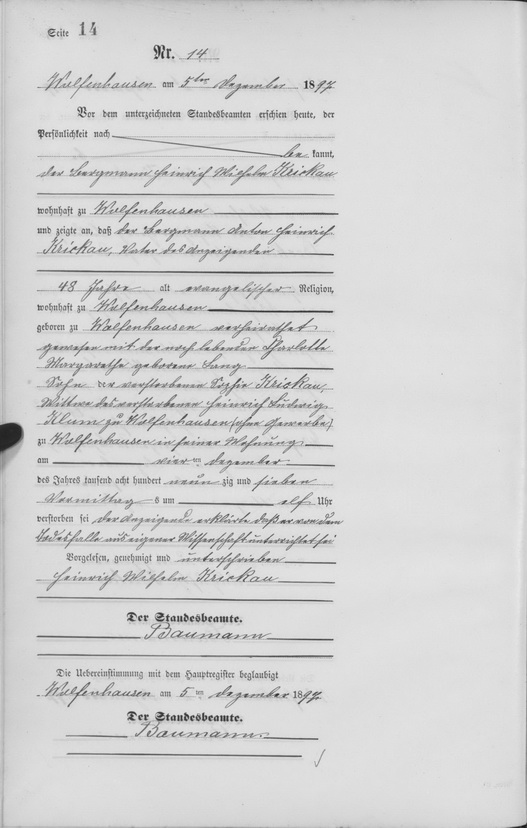 Seite 14
Nr. 14
Wolfenhausen am 5ten Dezember 1897
Vor dem unterzeichneten Standesbeamten erschien heute, der
Persönlichkeit nach
be kannt,
der Bergmann Heinrich Wilhelm Krickau
wohnhaft zu Wolfenhausen
und zeigte an, daß der Bergmann Anton Heinrich
Krickau, Vater des Anzeigenden
48 Jahre alt evangelischer Religion,
wohnhaft zu Wolfenhausen
geboren zu Wolfenhausen verheirathet
gewesen mit der noch lebenden Charlotte
Margarethe geborene Lang
Sohn der verstorbenen Sophie Krickau,
Wittwe des verstorbenen Heinrich Ludwig
Klum zu Wolfenhausen (ohne Gewerbe)
zu Wolfenhausen in seiner Wohnung
am vierten Dezember
des Jahres tausend acht hundert neun zig und sieben
Vormittag s um elf Uhr
verstorben sei der Anzeigende erklärte daß er von dem
Todesfalle aus eigener Wissenschaft unterrichtet sei
Vorgelesen, genehmigt und unterschrieben
Heinrich Wilhelm Krickau
Der Standesbeamte.
Baumann
Die Uebereinstimmung mit dem Hauptregister beglaubigt
Wolfenhausen am 5ten Dezember 1897
Der Standesbeamte.
Baumann